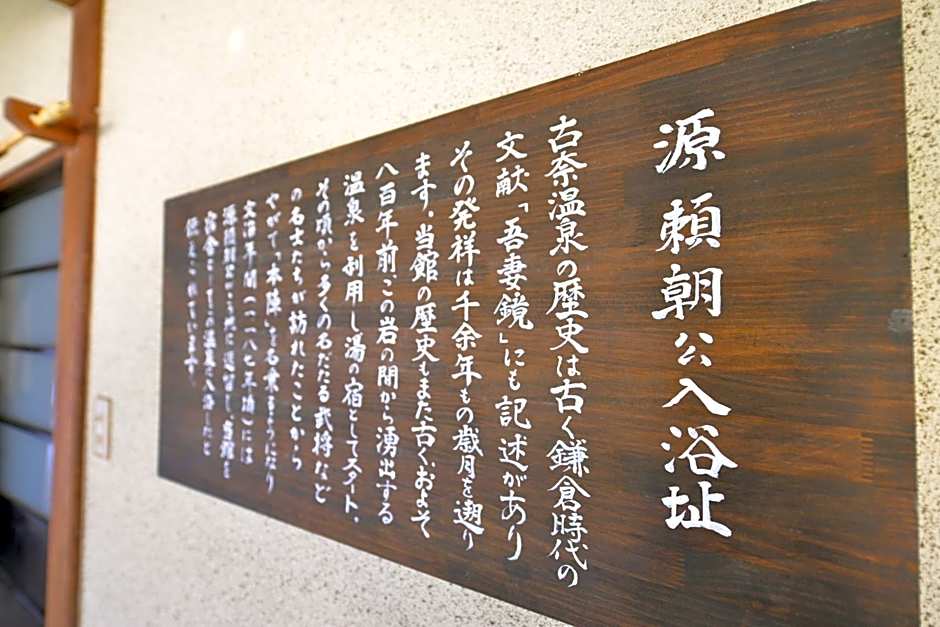 源頼朝公入浴址
古奈温泉の歴史は古く鎌倉時代の
文献「吾妻鏡」にも記述があり
その発祥は千余年もの歳月を遡り
ます。当館の歴史もまた古く、およそ
八百年前、この岩の間から湧出する
温泉を利用し湯の宿としてスタート、
その頃から多くの名だたる武将など
の名士たちが訪れたことから
やがて「本陣」を名乗るようになり
文治年間(一一八七年頃)には
源頼朝公がこの地に逗留し、当館を
宿舎としてこの温泉に入浴したと
伝えられています。